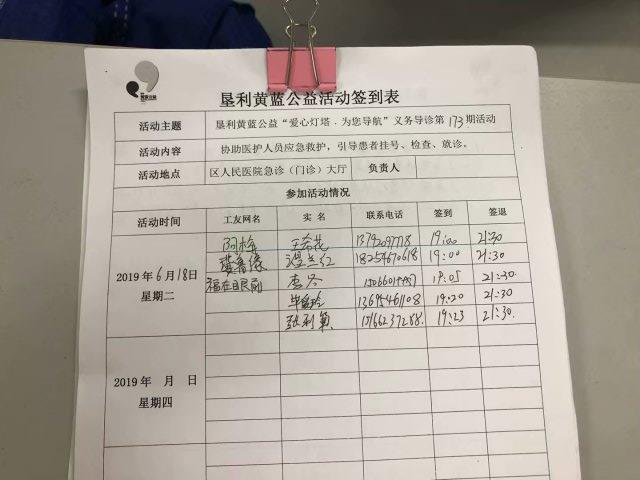 垦利黄蓝公益活动签到表
活动主题 垦利黄蓝公益“爱心灯塔．为您导航”义务导诊第173期活动
活动内容 协助医护人员应急救护，引导患者挂号、检查、就诊。
活动地点 区人民医院急诊（门诊）大厅 负责人
参加活动情况
活动时间 工友网名 实 名 联系电话 签到 签退
19:00 21:30
18254670618 19:00 21:30
2019年6月18日 福在眼前 李冬 19:05 21:30
星期二 13695461108 19:20 21:30
19:23 21:30
2019年 月 日
星期四